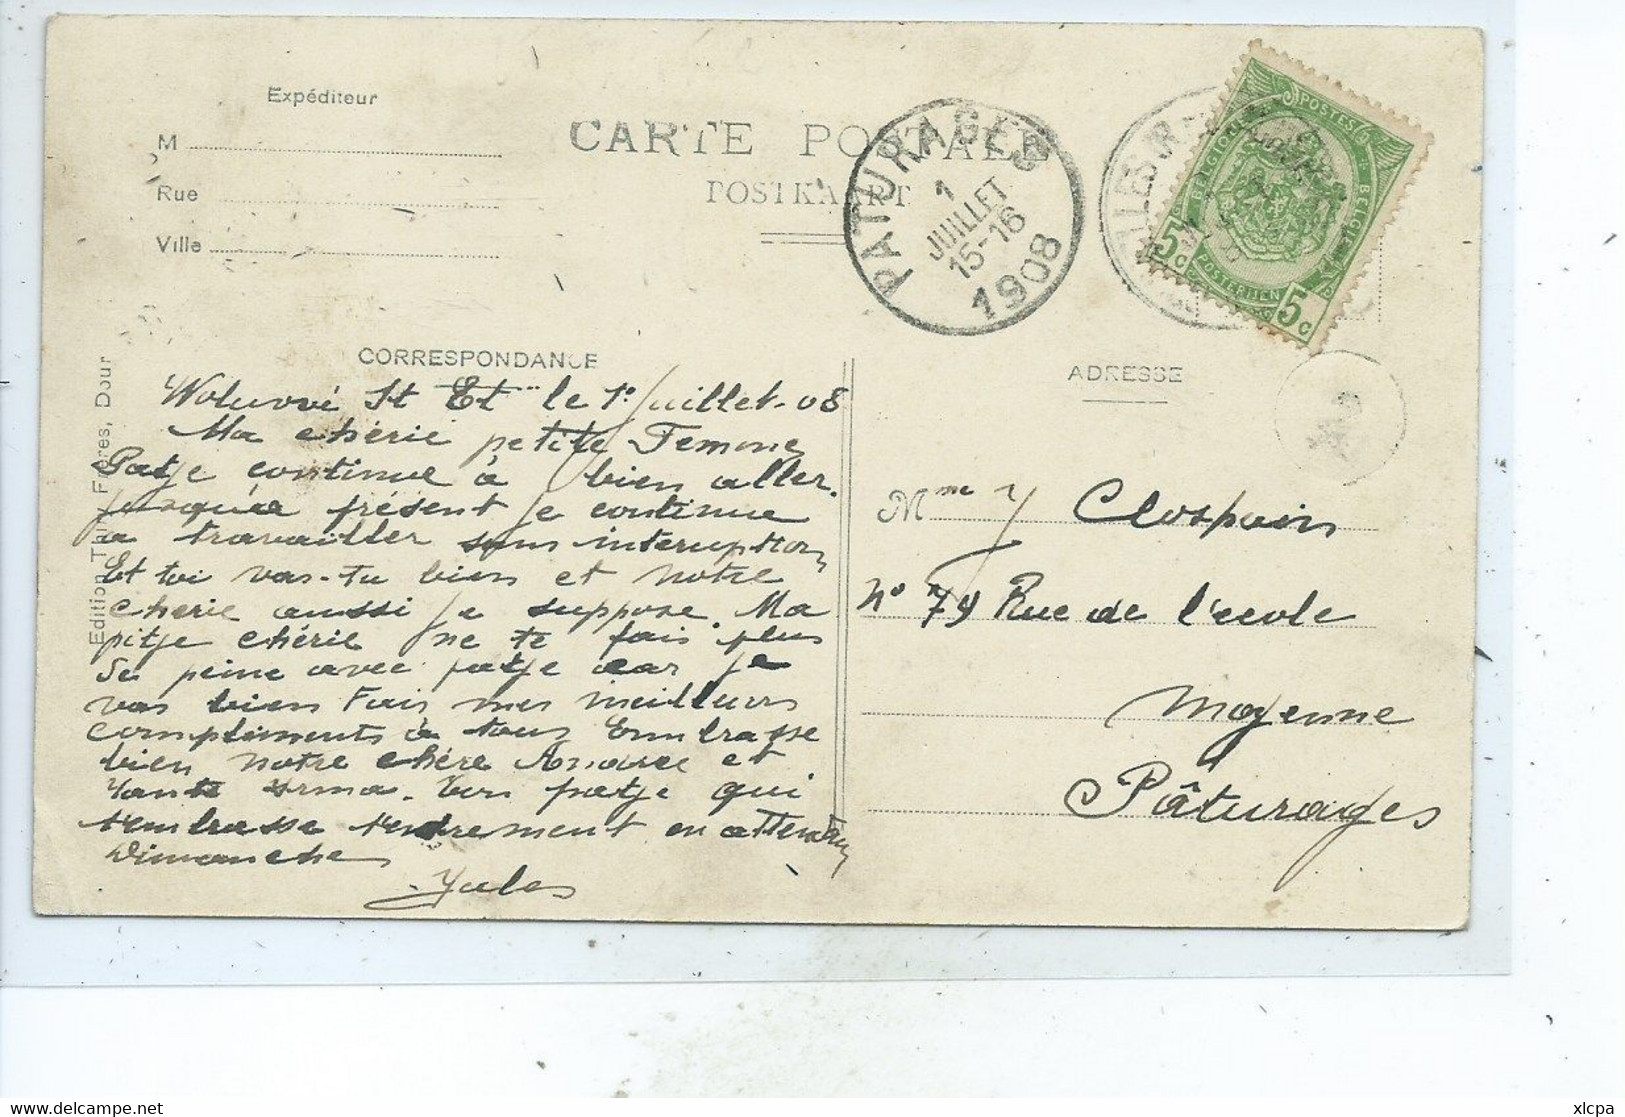 Expéditeur
M
Rue
Ville
CARTE POSTALE
POSTKAART
PATURAGES
1
JUILLET
15-16
1908
POSTES
BELGIQUE
BELGIE
POSTERIJEN
5c
5c
CORRESPONDANCE
ADRESSE
Edition Frères, Dour
Woluwé St Et le 1º Juillet - 08
Ma chérie petite Femme
Patje continue à bien aller.
jusqu'a présent je continue
a travailler sans interuption
Et toi vas-tu bien et notre
cherie aussi je suppose. Ma
ptitje chérie ne te fais plus
de peine avec patje car je
vas bien Fais mes meilleurs
compliments à tous Embrasse
bien notre chère Andrée et
tante Irma. Ton patje qui
t'embrasse tendrement en attendan
Dimanche
Jules
Mme J Clospain
Nº 79 Rue de l'ecole
Moyenne
Pâturages
delcampe.net
xlcpa